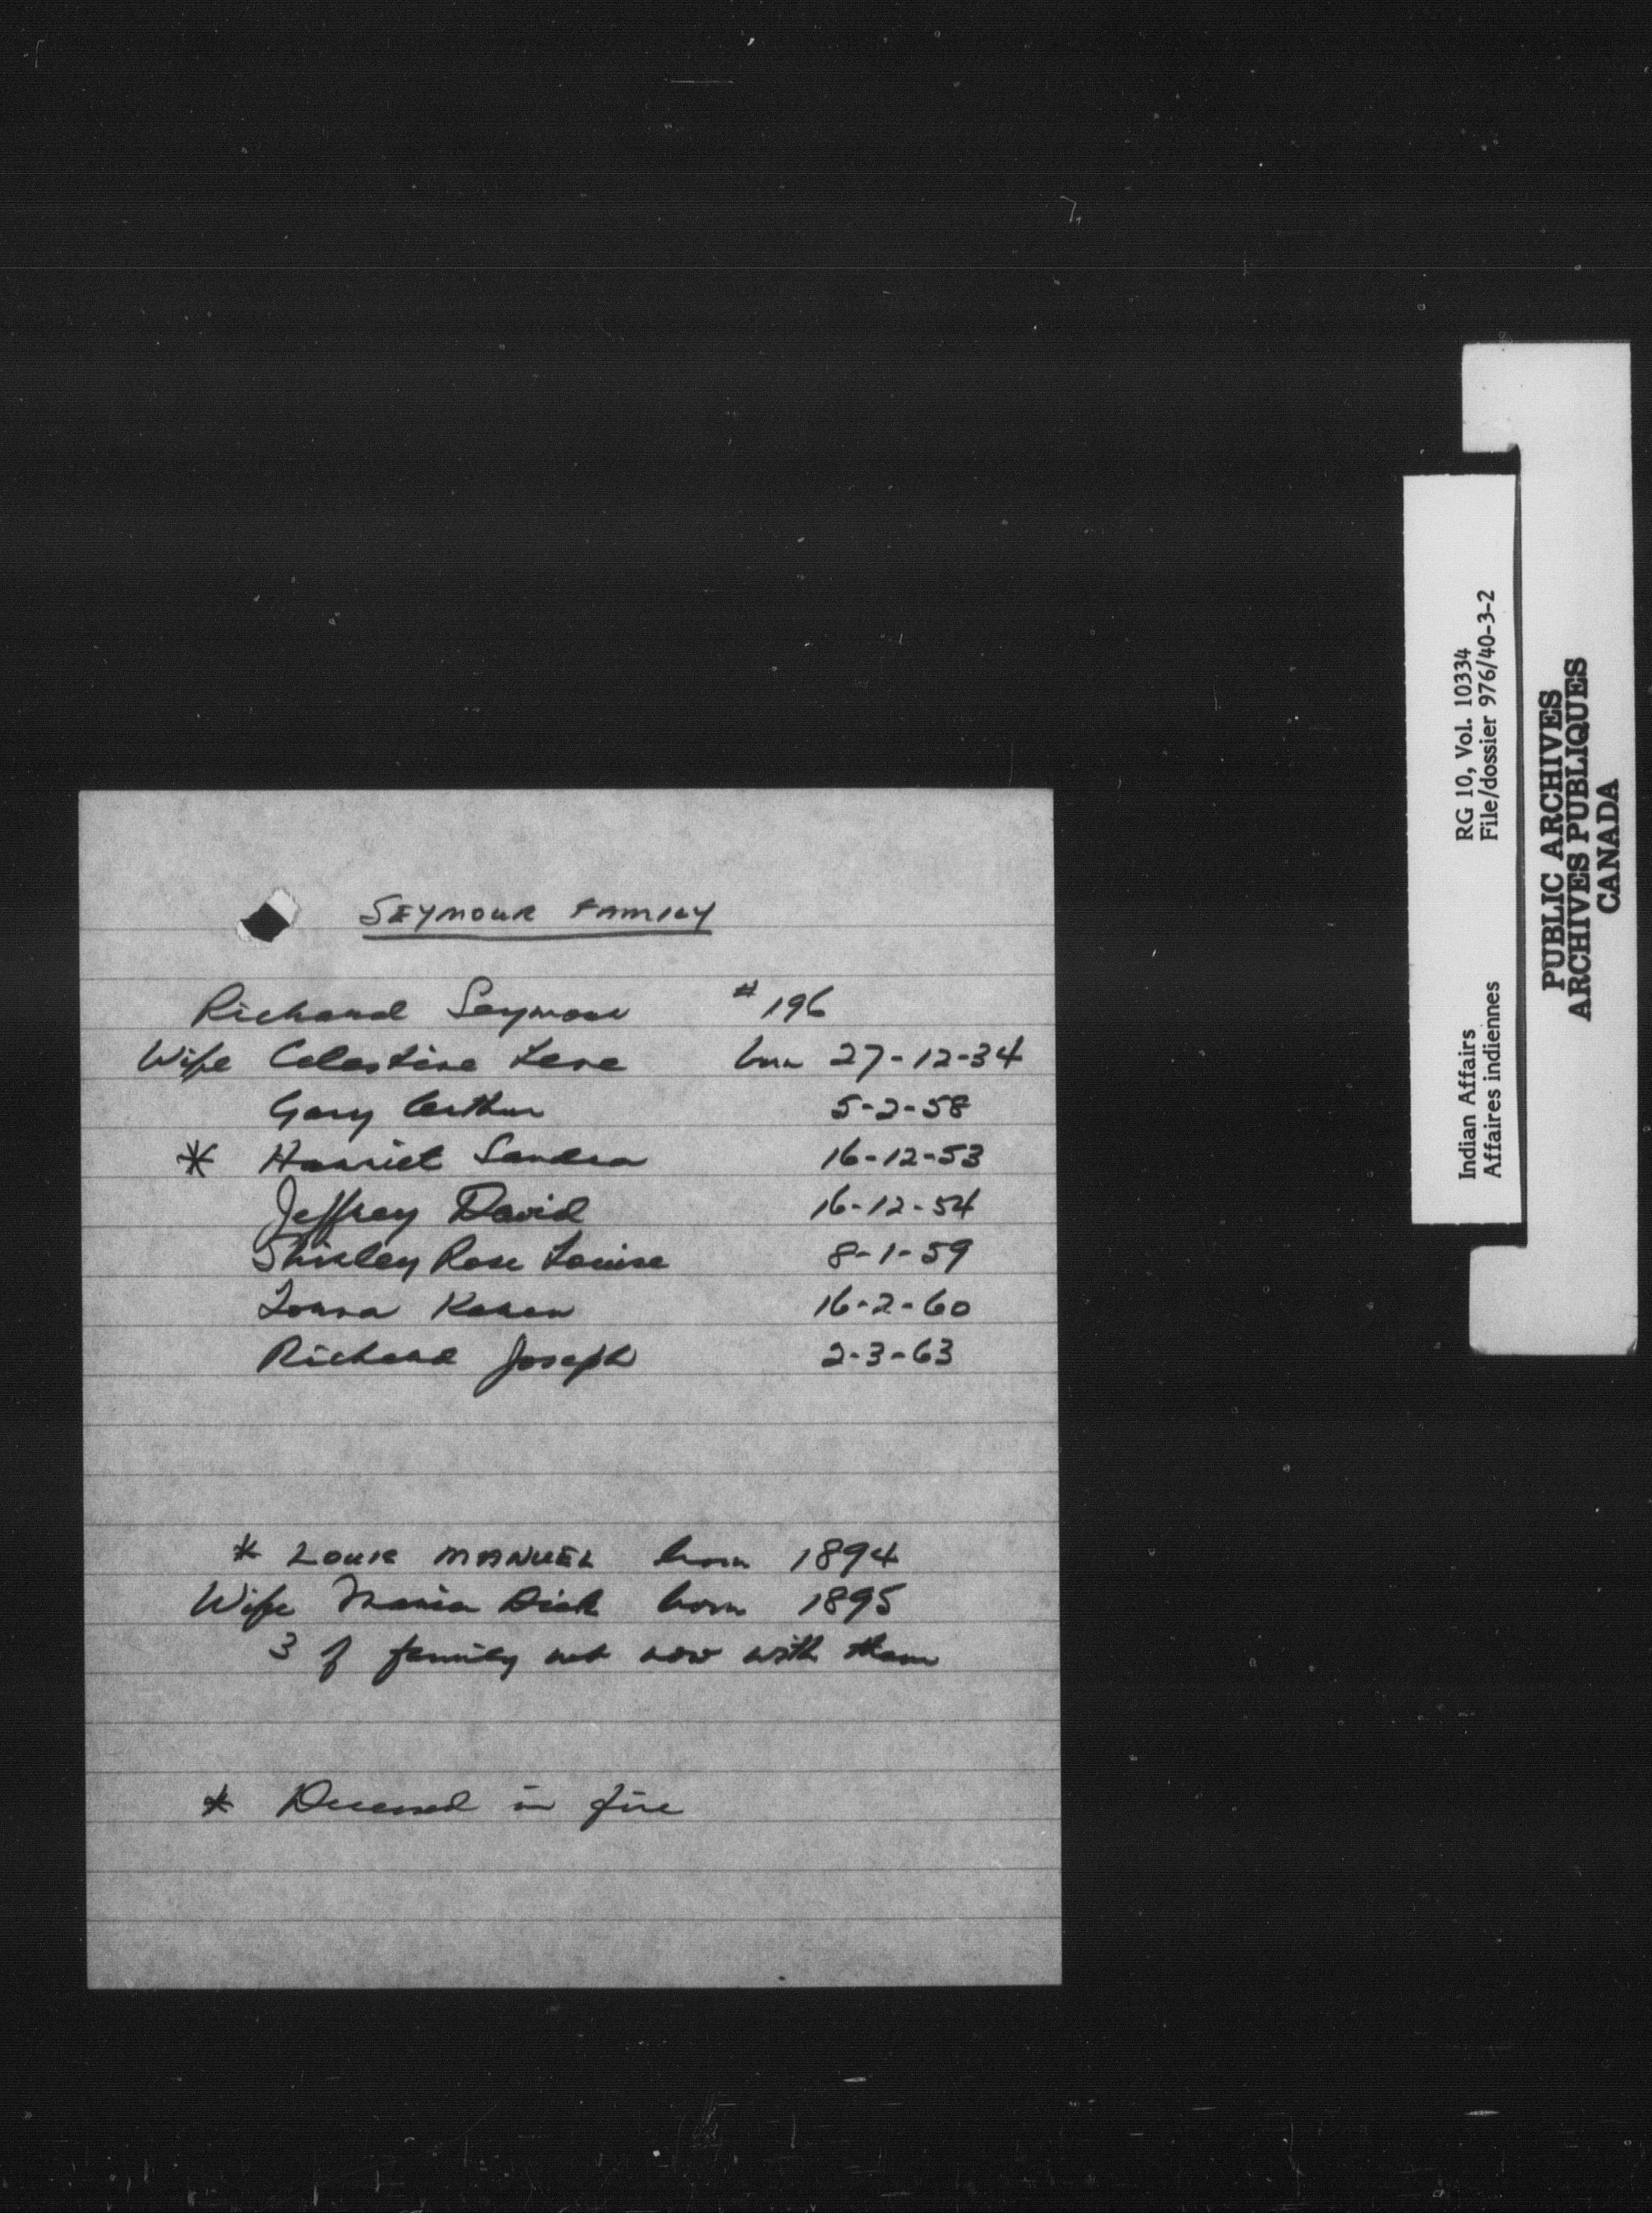 SEYMOUR FAMILY
Richard Seymour # 196
Wife Celestine Lere born 27-12-34
Gary Arthur 5-2-58
* Harriet Sandra 16-12-53
Jeffrey David 16-12-54
Shirley Rose Louise 8-1-59
Lorna Karen 16-2-60
Richard Joseph 2-3-63
* LOUIE MANUEL born 1894
Wife Maria Dick born 1895
3 of family not now with them
* Deceased in fire
Indian Affairs RG 10, Vol. 10334
Affaires indiennes File/dossier 976/40-3-2
PUBLIC ARCHIVES
ARCHIVES PUBLIQUES
CANADA